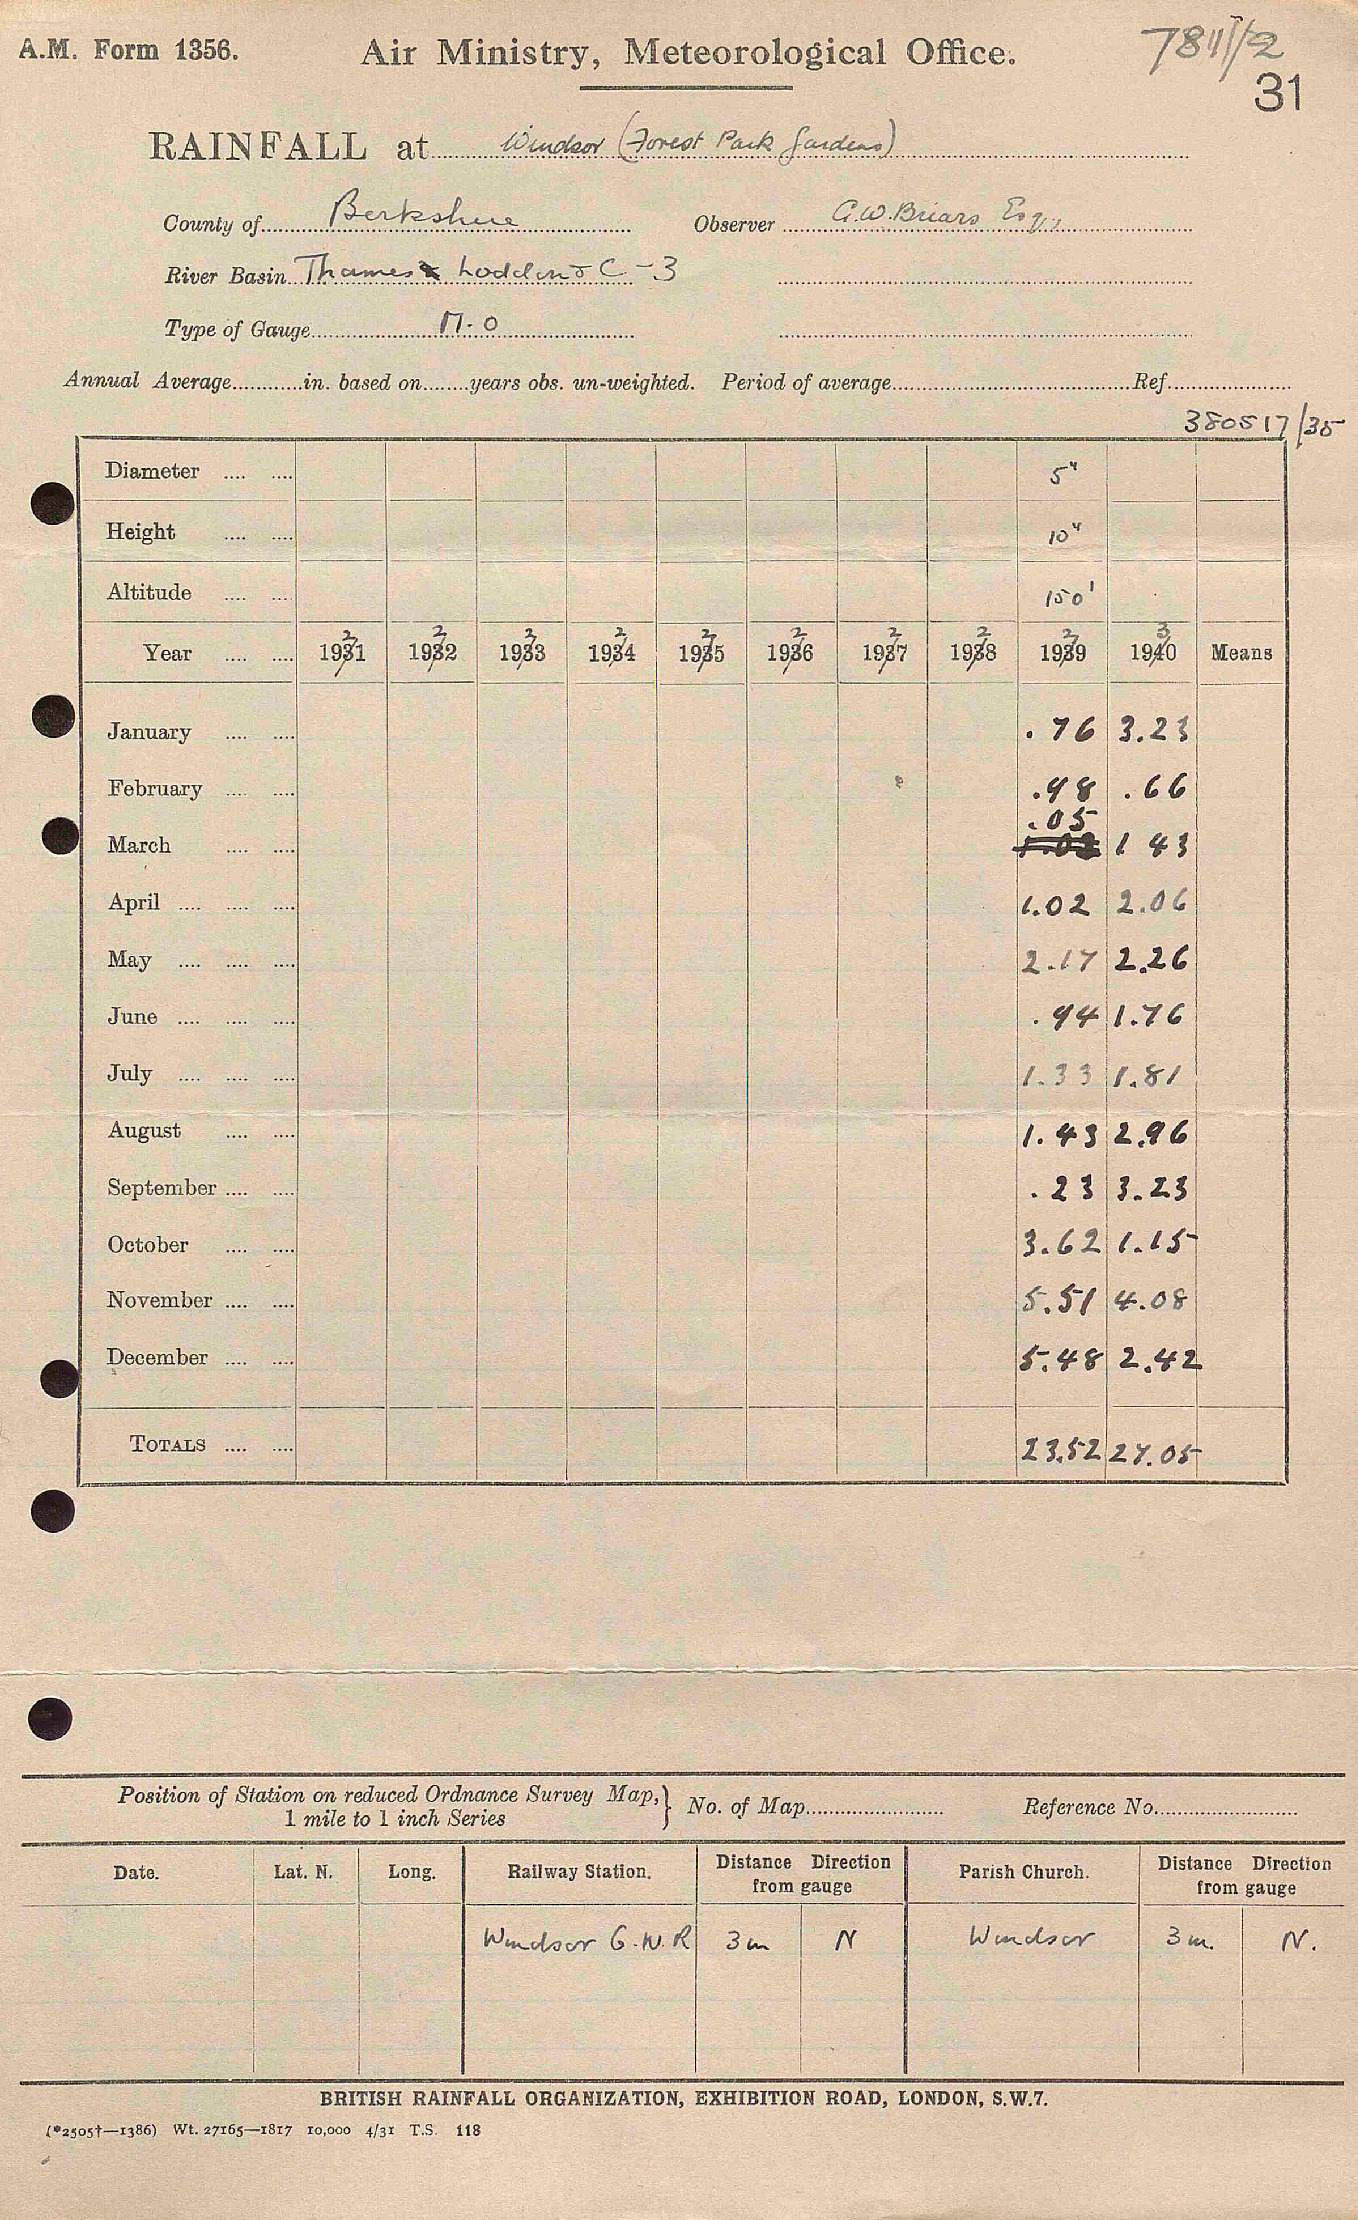 A.M. Form 1356. Air Ministry, Meteorological Office.
31
RAINFALL at Windsor (Forest Park Gardens)
County of Berkshire Observer G.W. Briars Esq.,
River Basin Thames Loddon & C - 3
Type of Gauge M.O
Annual Average in. based on years obs. un-weighted. Period of average Ref.
380517/35
Diameter 5"
Height 10"
Altitude 150'
2 2 2 2 2 2 2 2 2 3
Year 1931 1932 1933 1934 1935 1936 1937 1938 1939 1940 Means
January .76 3.23
February .98 .66
.05
March 1.02 1 43
April 1.02 2.06
May 2.17 2.26
June .94 1.76
July 1.33 1.81
August 1.43 2.96
September .23 3.23
October 3.62 1.15
November 5.51 4.08
December 5.48 2.42
TOTALS 23.52 27.05
Position of Station on reduced Ordnance Survey Map, 1 mile to 1 inch Series } No. of Map Reference No.
Date. Lat. N. Long. Railway Station. Distance Direction from gauge Parish Church. Distance Direction from gauge
Windsor G.W.R 3m N Windsor 3m. N.
BRITISH RAINFALL ORGANIZATION, EXHIBITION ROAD, LONDON, S.W.7.
(*2505†—1386) Wt. 27165—1817 10,000 4/31 T.S. 118